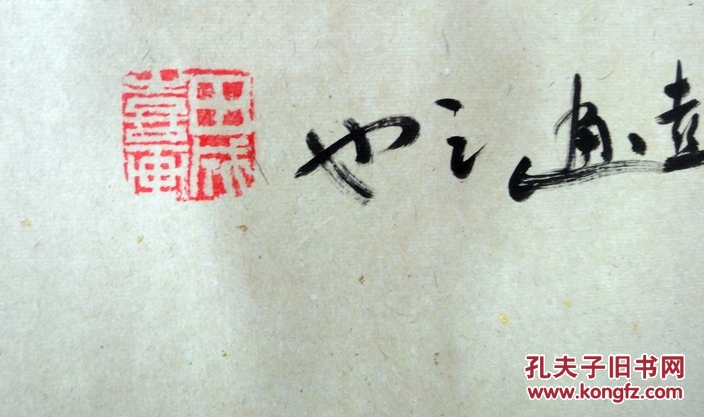 画之也
田
孔夫子旧书网
www.kongfz.com